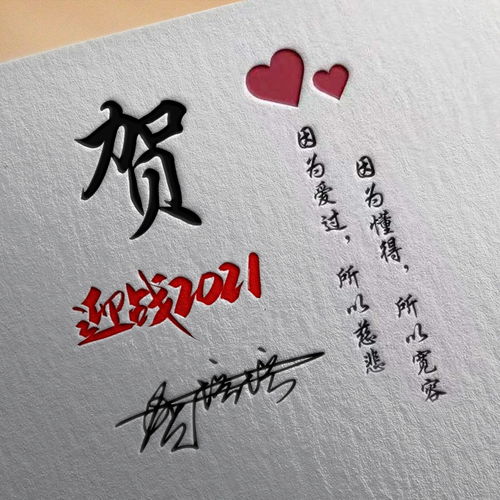 贺
迎战2021
因为爱过，所以慈悲
因为懂得，所以宽容